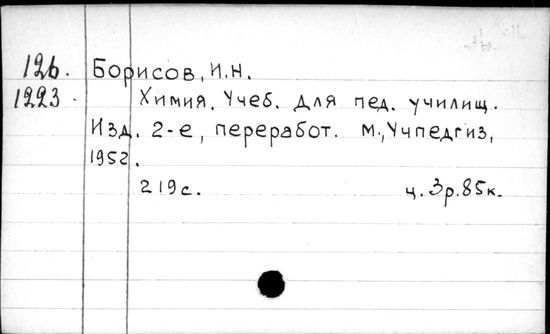 126. Борисов, И.Н.
1223. Химия. Учеб. для пед. училищ.
Изд. 2-е, переработ. М., Учпедгиз,
1952.
219с. ц. 3р.85к.